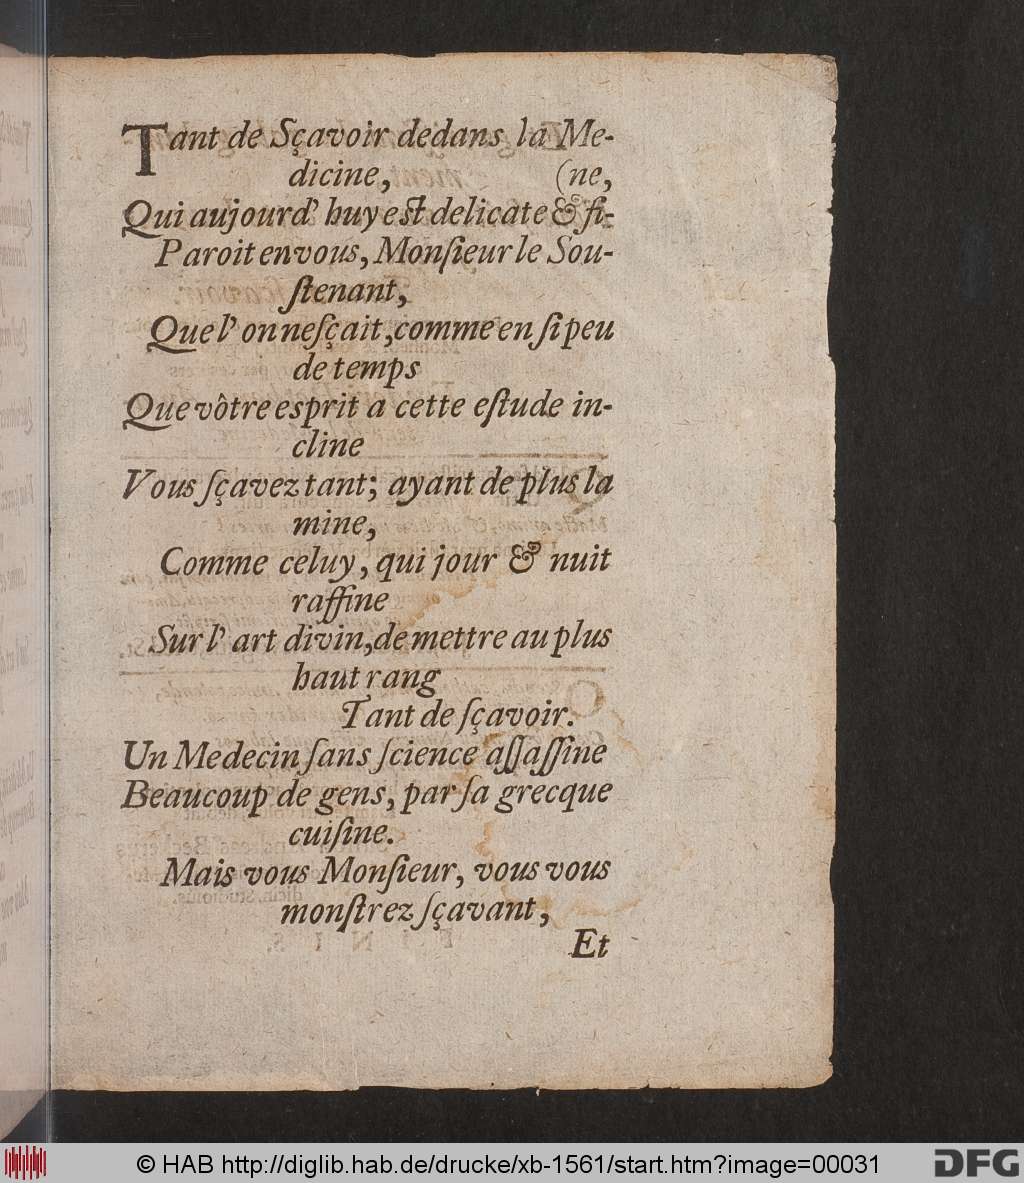 Tant de Sçavoir dedans la Me-
dicine, (ne,
Qui aujourd' huy est delicate & fi-
Paroit en vous, Monſieur le Sou-
ſtenant,
Que l' on ne ſçait, comme en ſi peu
de temps
Que vôtre esprit a cette eſtude in-
cline
Vous ſçavez tant; ayant de plus la
mine,
Comme celuy, qui jour & nuit
raffine
Sur l' art divin, de mettre au plus
haut rang
Tant de ſçavoir.
Un Medecin ſans ſcience aſſaſſine
Beaucoup de gens, par ſa grecque
cuiſine.
Mais vous Monſieur, vous vous
monſtrez ſçavant,
Et
© HAB http://diglib.hab.de/drucke/xb-1561/start.htm?image=00031
DFG